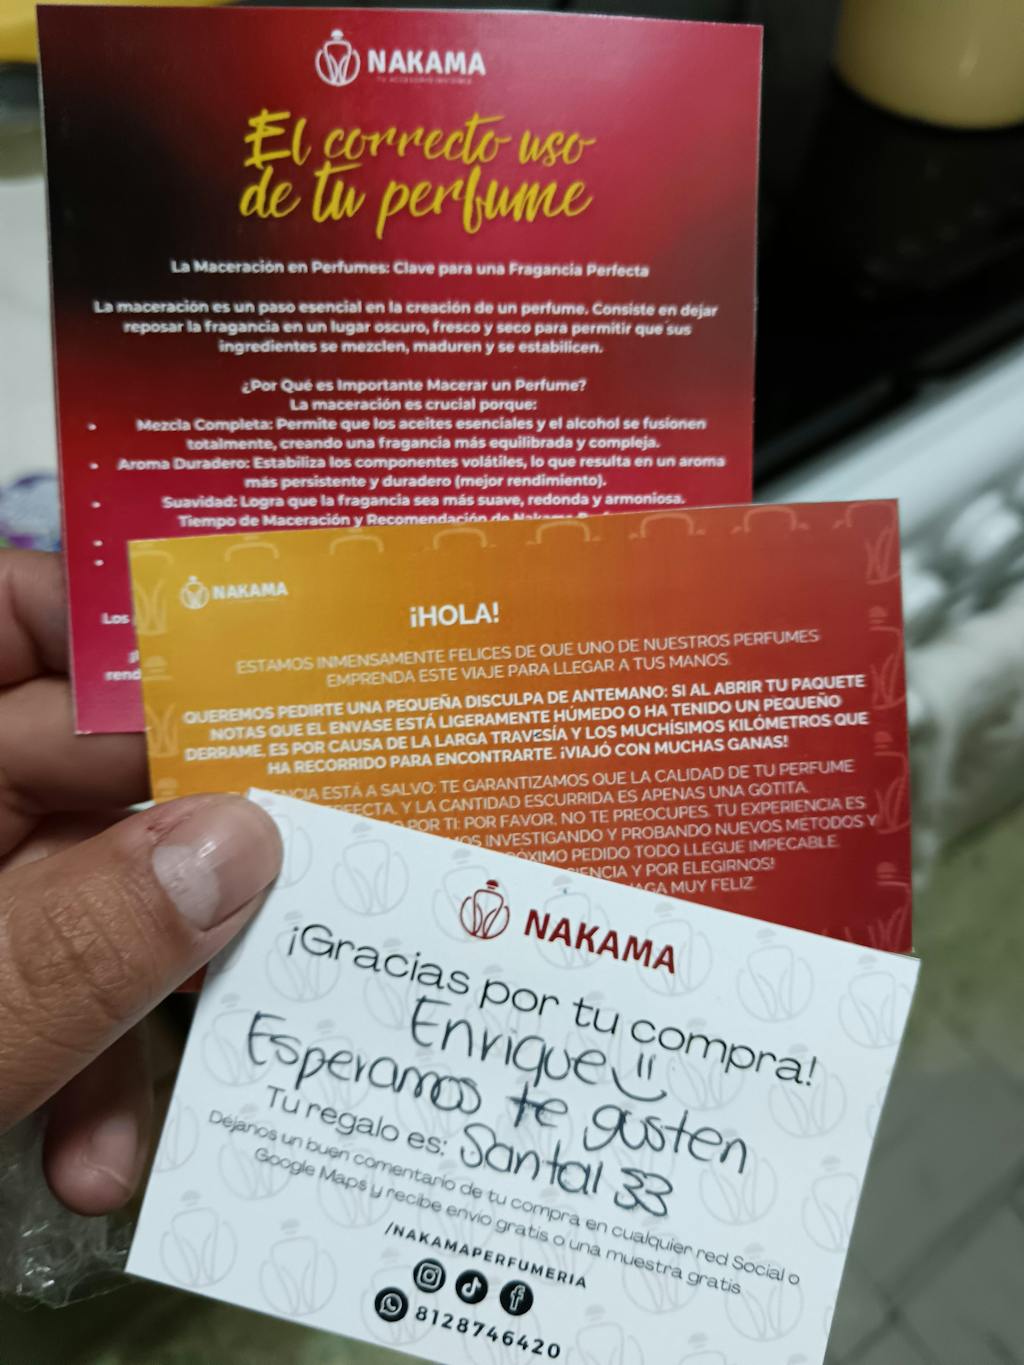 NAKAMA
El correcto uso
de tu perfume
La Maceración en Perfumes: Clave para una Fragancia Perfecta
La maceración es un paso esencial en la creación de un perfume. Consiste en dejar
reposar la fragancia en un lugar oscuro, fresco y seco para permitir que sus
ingredientes se mezclen, maduren y se estabilicen.
¿Por Qué es Importante Macerar un Perfume?
La maceración es crucial porque:
• Mezcla Completa: Permite que los aceites esenciales y el alcohol se fusionen
totalmente, creando una fragancia más equilibrada y compleja.
• Aroma Duradero: Estabiliza los componentes volátiles, lo que resulta en un aroma
más persistente y duradero (mejor rendimiento).
• Suavidad: Logra que la fragancia sea más suave, redonda y armoniosa.
Tiempo de Maceración y Recomendación de
Los
rend
NAKAMA
¡HOLA!
ESTAMOS INMENSAMENTE FELICES DE QUE UNO DE NUESTROS PERFUMES
EMPRENDA ESTE VIAJE PARA LLEGAR A TUS MANOS.
QUEREMOS PEDIRTE UNA PEQUEÑA DISCULPA DE ANTEMANO: SI AL ABRIR TU PAQUETE
NOTAS QUE EL ENVASE ESTÁ LIGERAMENTE HÚMEDO O HA TENIDO UN PEQUEÑO
DERRAME, ES POR CAUSA DE LA LARGA TRAVESÍA Y LOS MUCHÍSIMOS KILÓMETROS QUE
HA RECORRIDO PARA ENCONTRARTE. ¡VIAJÓ CON MUCHAS GANAS!
ESTÁ A SALVO: TE GARANTIZAMOS QUE LA CALIDAD DE TU PERFUME
Y LA CANTIDAD ESCURRIDA ES APENAS UNA GOTITA.
POR TI: POR FAVOR, NO TE PREOCUPES. TU EXPERIENCIA ES
INVESTIGANDO Y PROBANDO NUEVOS MÉTODOS Y
PEDIDO TODO LLEGUE IMPECABLE.
Y POR ELEGIRNOS!
MUY FELIZ
NAKAMA
¡Gracias por tu compra!
Enrique
Esperamos te gusten
Tu regalo es: Santal 33
Déjanos un buen comentario de tu compra en cualquier red Social o
Google Maps y recibe envío gratis o una muestra gratis
/NAKAMAPERFUMERIA
8128746420